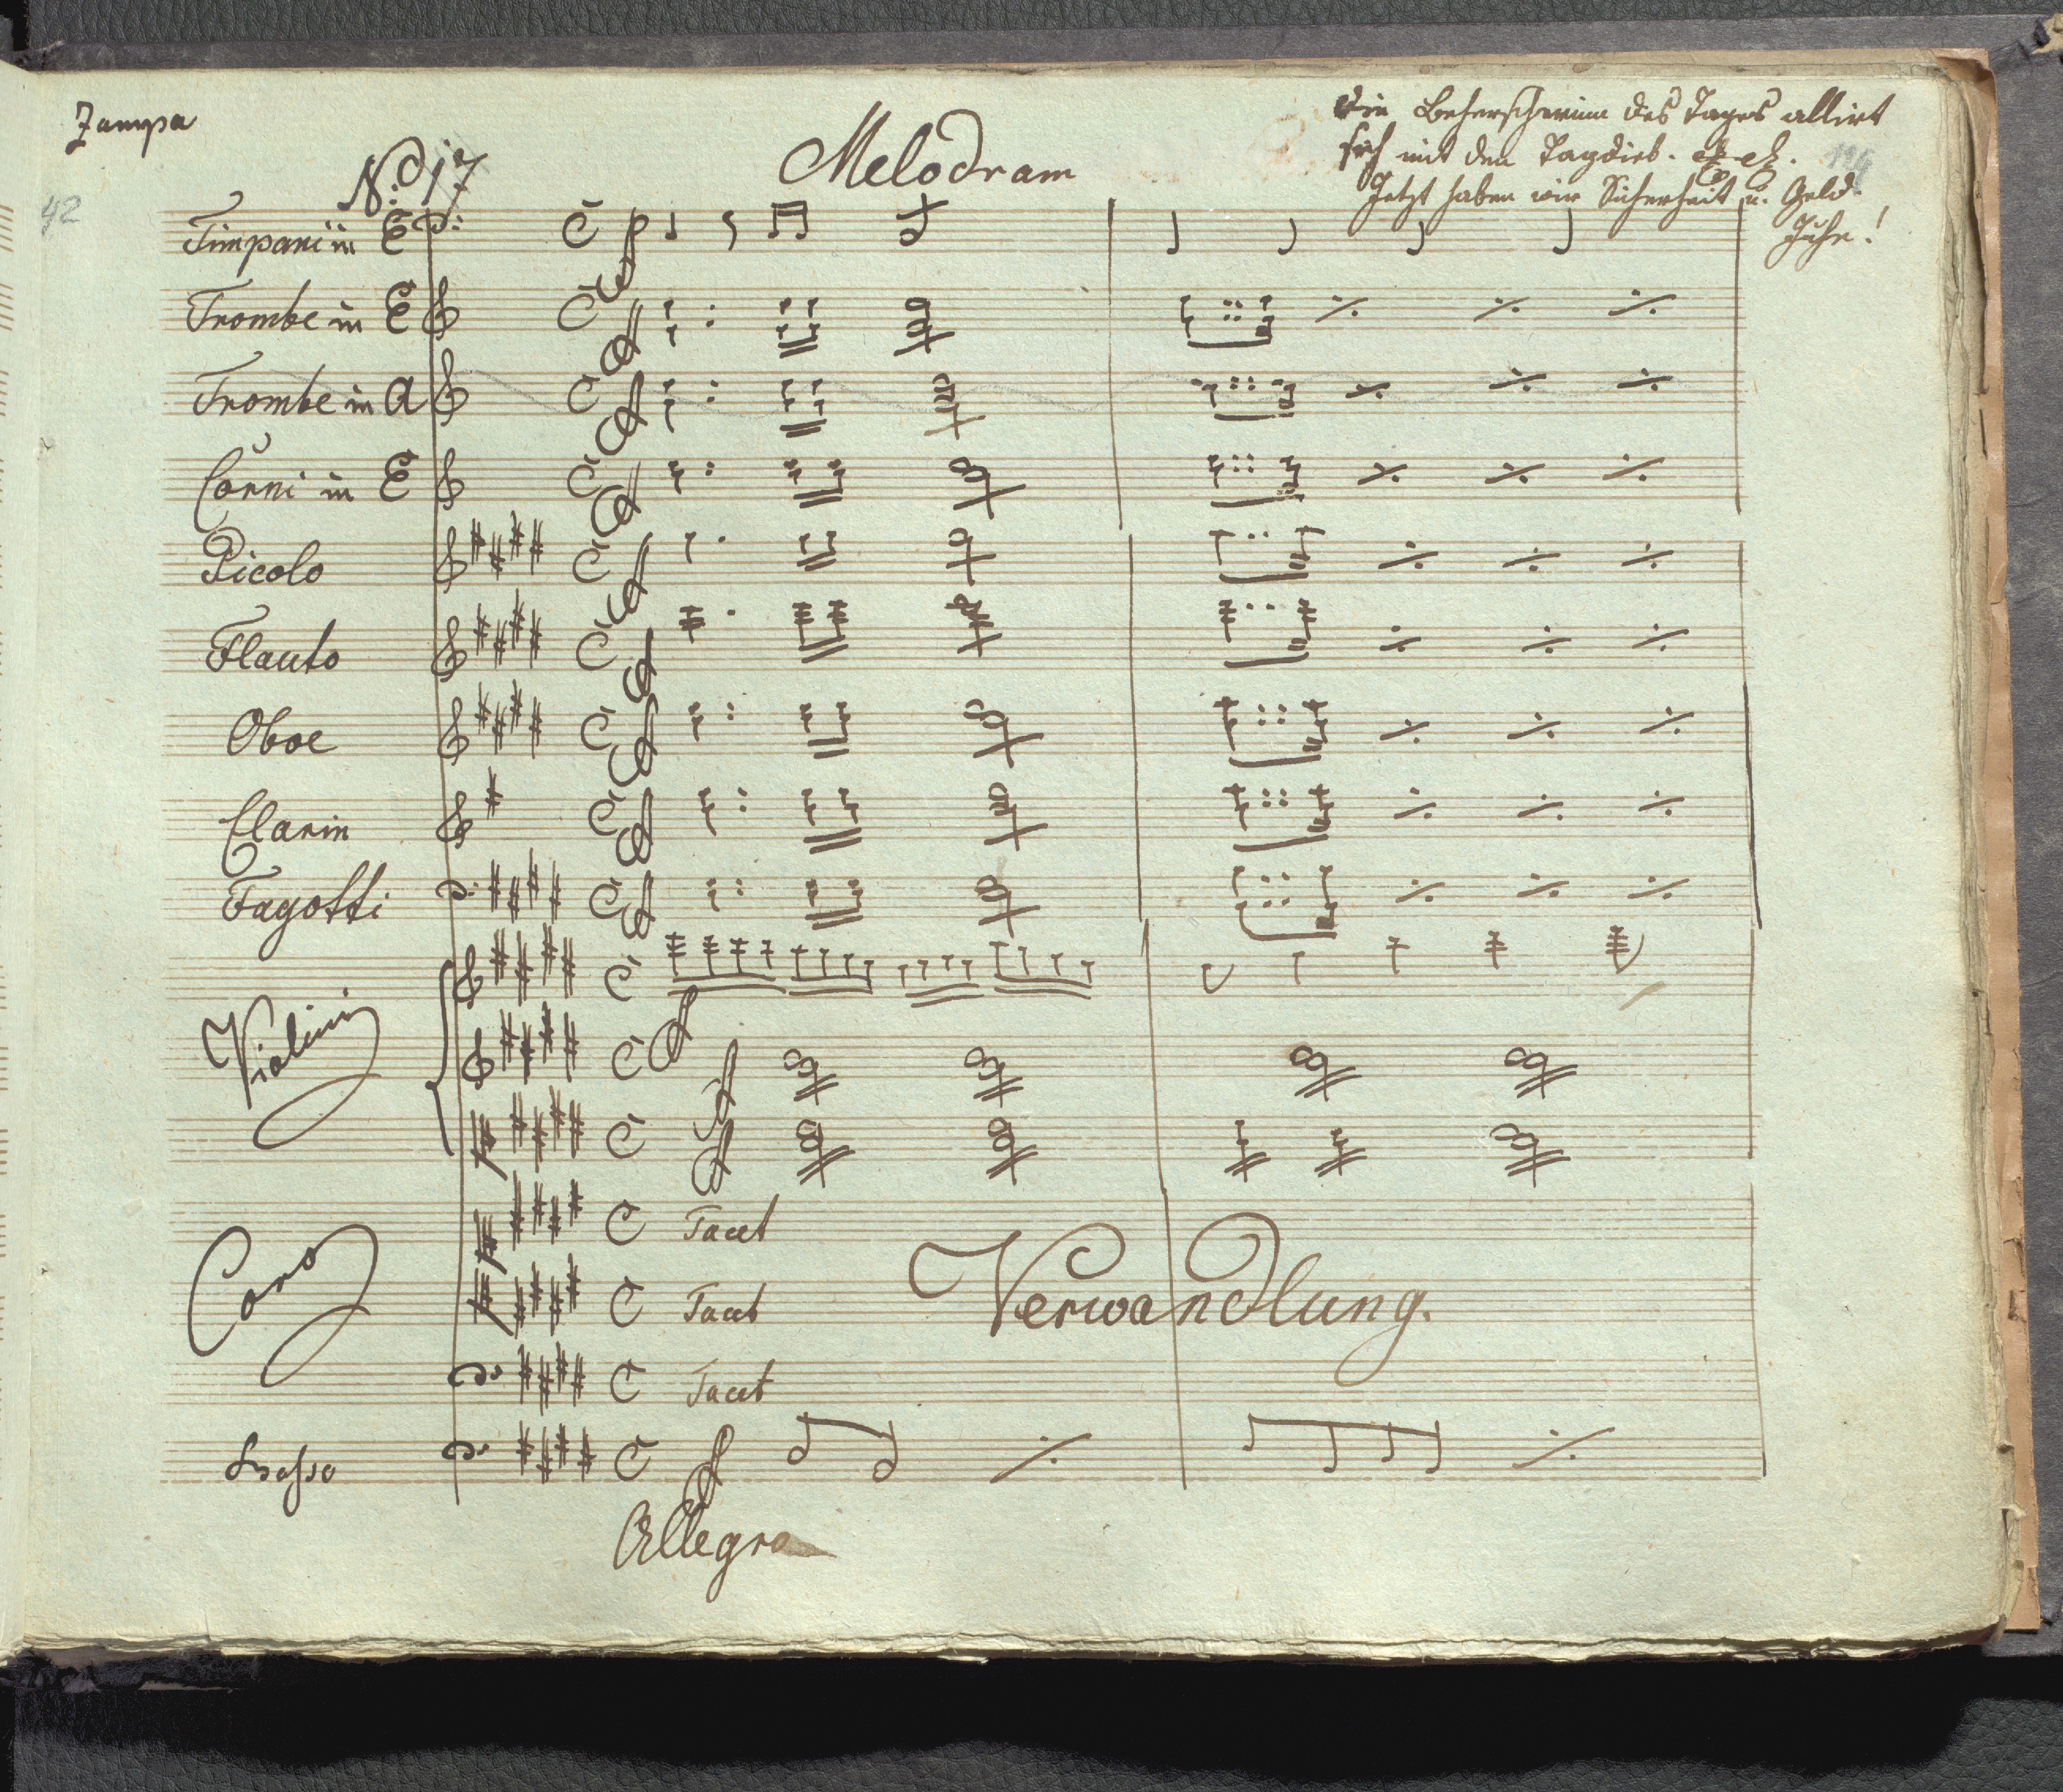 Zampa
Die Beherscherinn des Tages allirt
sich mit den Tagdieb.
Jetzt haben wir Sicherheit u. Geld.
Juhe!
No. 17
Melodram
42
Timpani in E
Trombe in E
Trombe in A
Corni in E
Picolo
Flauto
Oboe
Clarin
Fagotti
Violini
Coro
Tacet
Tacet
Verwandlung.
Tacet
Basso
Allegro